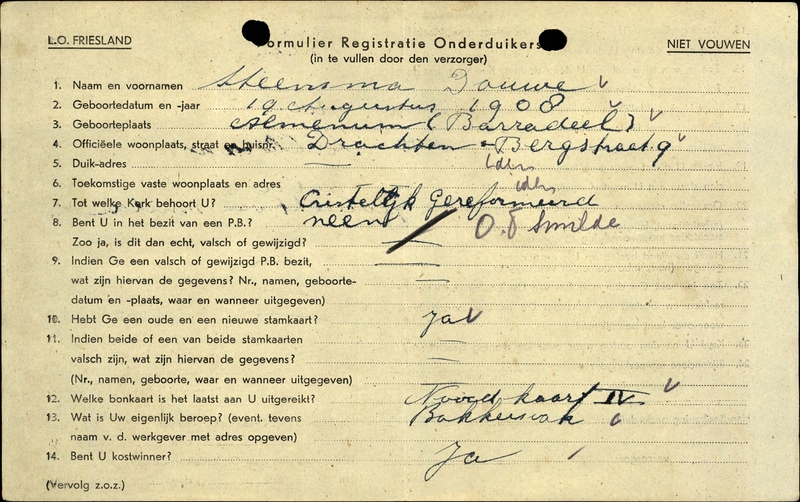 L.O. FRIESLAND
Formulier Registratie Onderduikers
NIET VOUWEN
(in te vullen door den verzorger)
1. Naam en voornamen Steensma Douwe
2. Geboortedatum en -jaar 19 Augustus 1908
3. Geboorteplaats Almenum (Barradeel)
4. Officiëele woonplaats, straat en huisnr. Drachten - Bergstraat 9
5. Duik-adres idem
6. Toekomstige vaste woonplaats en adres idem
7. Tot welke Kerk behoort U? Cristelijk Gereformeerd
8. Bent U in het bezit van een P.B.? neen O.D Smilde
Zoo ja, is dit dan echt, valsch of gewijzigd? —
9. Indien Ge een valsch of gewijzigd P.B. bezit, —
wat zijn hiervan de gegevens? Nr., namen, geboorte- —
datum en -plaats, waar en wanneer uitgegeven)
10. Hebt Ge een oude en een nieuwe stamkaart? Ja
11. Indien beide of een van beide stamkaarten —
valsch zijn, wat zijn hiervan de gegevens? —
(Nr., namen, geboorte, waar en wanneer uitgegeven)
12. Welke bonkaart is het laatst aan U uitgereikt? Noodkaart IV
13. Wat is Uw eigenlijk beroep? (event. tevens Bakkersvak
naam v. d. werkgever met adres opgeven)
14. Bent U kostwinner? Ja
(Vervolg z.o.z.)